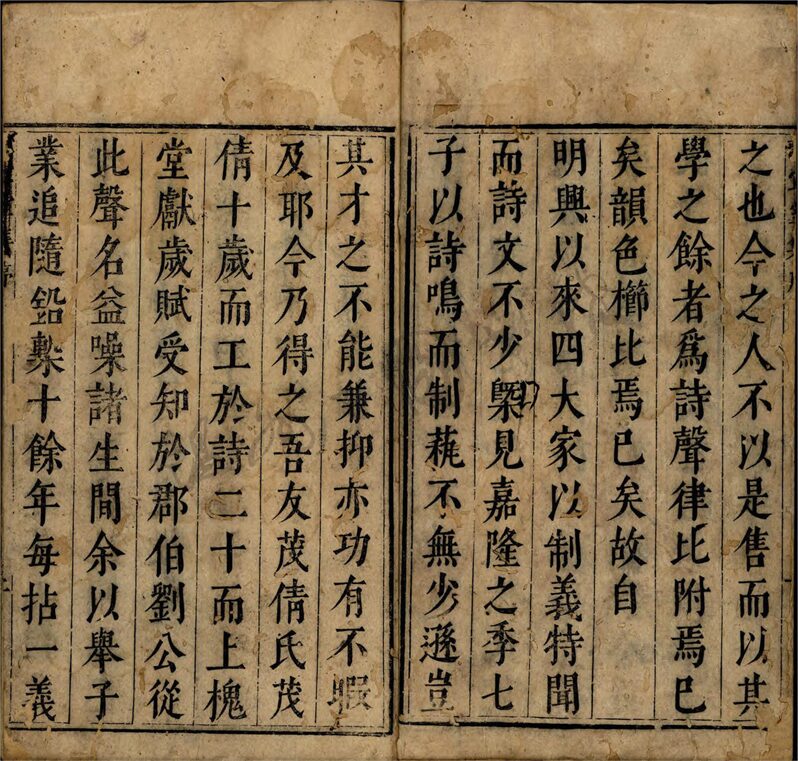 之也今之人不以是售而以其
學之餘者爲詩聲律比附焉已
矣韻色櫛比焉已矣故自
明興以來四大家以制義特聞
而詩文不少槩見嘉隆之季七
子以詩鳴而制蓺不無少遜豈
其才之不能兼抑亦功有不暇
及耶今乃得之吾友茂倩氏茂
倩十歲而工於詩二十而上槐
堂獻歲賦受知於郡伯劉公從
此聲名益噪諸生間余以舉子
業追隨鉛槧十餘年每拈一義